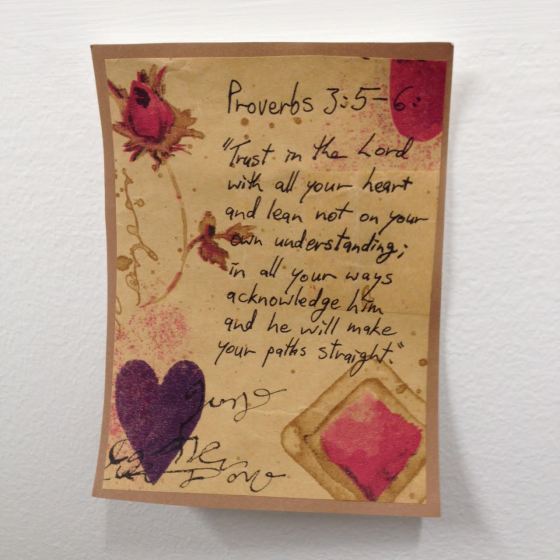 Proverbs 3:5-6:
"Trust in the Lord
with all your heart
and lean not on your
own understanding;
in all your ways
acknowledge him
and he will make
your paths straight."